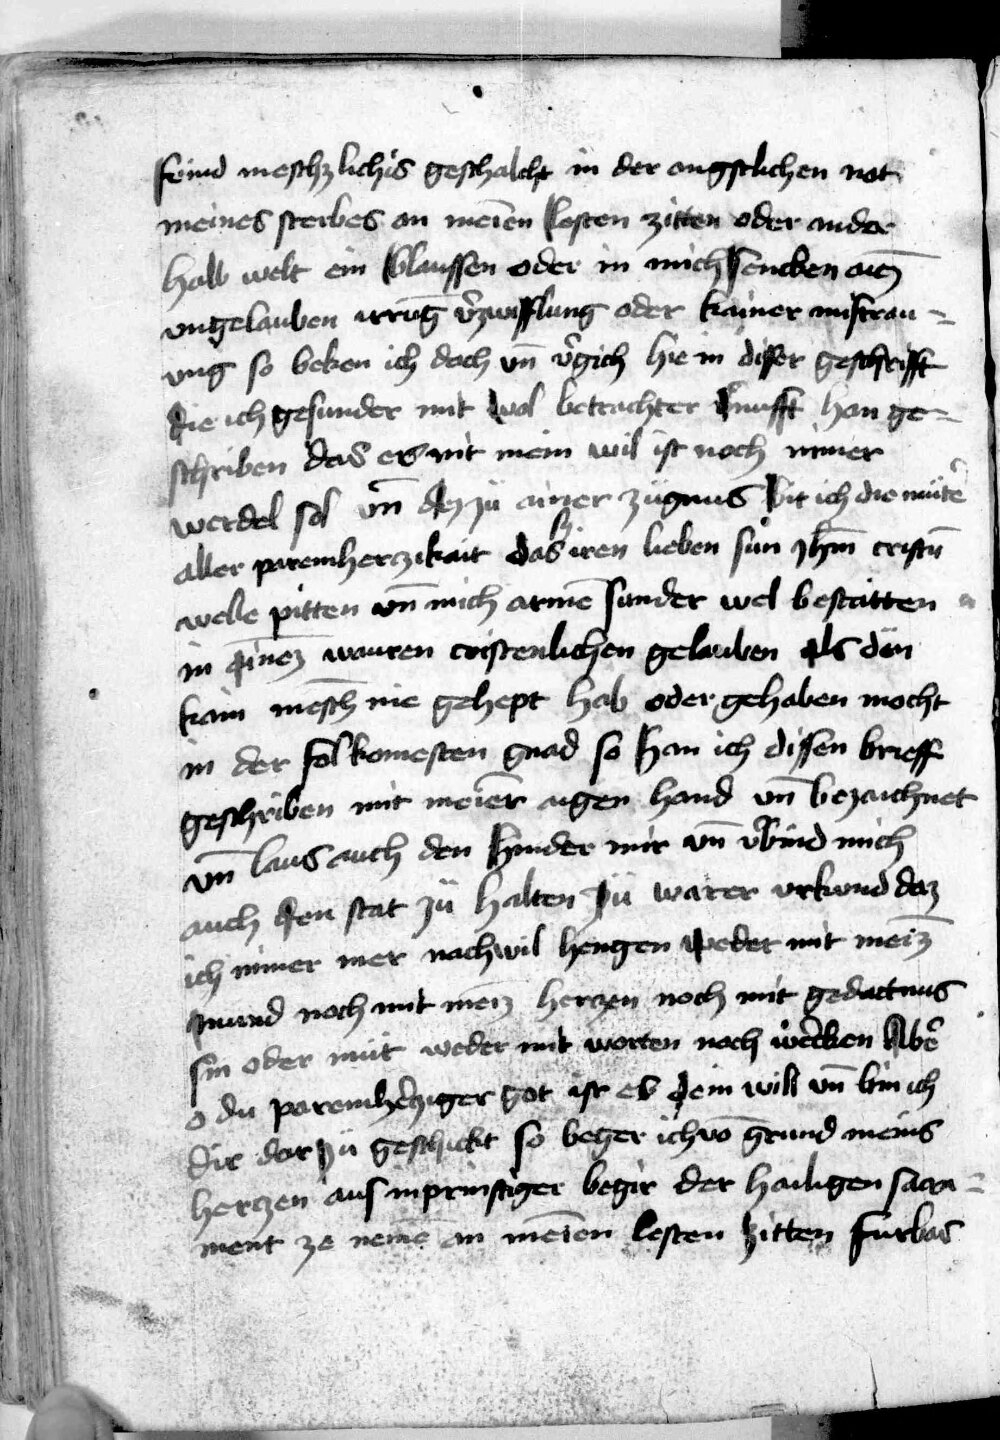 feind meschzlichs geschalcht in der angstlichen not
meines sterbes an meīen lesten zitten oder ander
halb welt ein blaussen oder in mich sencken aiē
ungelauben irrūg v̄zwifflung oder kainer mistrau=
ung so beken ich doch vn̄ v̄gich hie in disser geschrifft
die ich gesunder mit wol betrachter v̄nufft han ge=
schriben das es nit mein wil ist noch nimer
werdel sol vn̄ dez zü ainer zügnus bit ich die müte͛
aller paremherczikait das sy iren lieben sun Jh̄m cristū
welle pitten vn̄ mich armē sunder wel bestätten
in ainez wauren cristenlichen gelauben als den
kain mesch nie gehept hab oder gehaben mocht
in der folkomesten gnad so han ich dissen brieff
geschriben mit meīer aigen hand vn̄ bezaichnet
vn̄ laus auch den hinder mir vn̄ v̄bind mich
auch den stat zü halten zü warer urkund daz
ich nimer mer nach wil hengen weder mit meīz
mund noch mit meīz herczen noch mit gedactnus
sin oder müt weder mit worten noch wercken Abe͛
o du paremh͛cziger got ist es dein will vn̄ bin ich
dir dar zü geschickt so beger ich vō grund meins
herczen aus inprinstiger begir der hailigen sacra=
ment ze nemē an meīen lesten zitten furbas